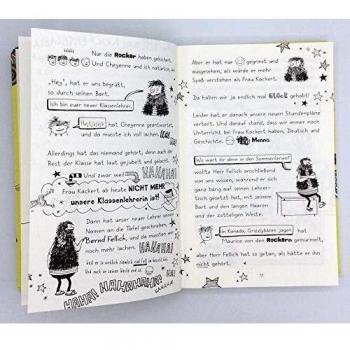 Nur die Rocker haben gekichert.
Und Cheyenne und ich natürlich, a
"Hey", hat er uns begrüßt,
so durch seinen Bart.
Ich bin euer neuer Klassenlehrer.
hat Cheyenne geantwortet,
und da musste ich voll lachen.
Allerdings hat das niemand gehört, denn auch de
Rest der Klasse hat laut gejubelt und gelacht.
Und zwar weil
HAHAHA
Frau Kackert ab heute NICHT MEHR
unsere Klassenlehrerin ist!
Dann hat unser neuer Lehrer seinen
Namen an die Tafel geschrieben,
Bernd Fellich, und da mussten wir
noch mehr lachen.
HAHAHA!
Weil er so
HAHA! HAHAHAHAHA!
Aber er hat nur gegrinst und
ausgesehen, als würde er mehr
Spaß verstehen als Frau Kackert.
Da haben wir ja endlich mal Glück gehabt!
Leider hat er danach unsere neuen Stundenpläne
verteilt. Und darauf stand, dass wir immer noch
Unterricht bei Frau Kackert haben, Deutsch und
Geschichte.
Menno.
Wo wart ihr denn in den Sommerferien?
wollte Herr Fellich anschließend
von uns wissen, während er sich
ganz bärig auf seinen Lehrer-
tisch gesetzt hat mit seinem
Bart und den langen
Haaren und der
zotteligen Weste.
In Kanada, Grizzlybären jagen, hat
Maurice von den Rockern gemurmelt,
aber Herr Fellich hat so getan, als hätte er ihn
nicht gehört.